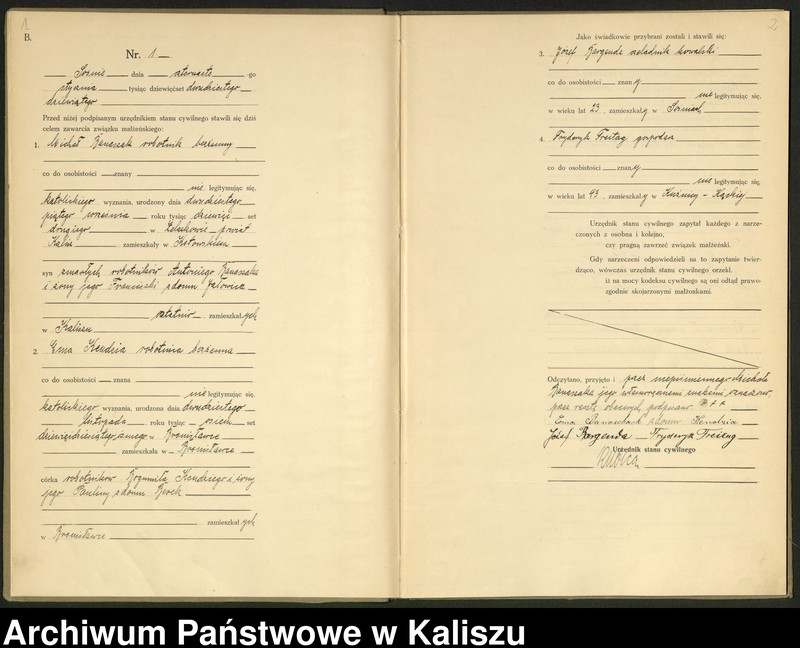 1
B.
Nr. 1
dnia czwartego -go
stycznia tysiąc dziewięćset dwudziestego
dziewiątego
Przed niżej podpisanym urzędnikiem stanu cywilnego stawili się dziś
celem zawarcia związku małżeńskiego:
1. Michał Banaszak robotnik bezżenny
co do osobistości znany
nie legitymując się,
katolickiego wyznania, urodzony dnia dwudziestego
piątego września roku tysiąc dziewięć set
drugiego w powiat
Kalisz zamieszkały w
syn zmarłych robotników Antoniego Banaszaka
i żony jego Franciszki z domu
ostatnio zamieszkałych
w Kaliszu
2. Ema Kendzia robotnica bezżenna
co do osobistości znana
nie legitymując się,
katolickiego wyznania, urodzona dnia dwudziestego
listopada roku tysiąc osiem set
dziewięćdziesiątego w
zamieszkała w
córka robotników Kendziego i żony
jego Pauliny z domu
zamieszkałych
w
2
Jako świadkowie przybrani zostali i stawili się:
3. Józef czeladnik kowalski
co do osobistości znany
nie legitymując się,
w wieku lat 23, zamieszkały w
4. Fryderyk Freitag gospodarz
co do osobistości znany
nie legitymując się,
w wieku lat 43, zamieszkały w
Urzędnik stanu cywilnego zapytał każdego z narze-
czonych z osobna i kolejno,
czy pragną zawrzeć związek małżeński.
Gdy narzeczeni odpowiedzieli na to zapytanie twier-
dząco, wówczas urzędnik stanu cywilnego orzekł,
iż na mocy kodeksu cywilnego są oni odtąd prawo-
zgodnie skojarzonymi małżonkami.
Odczytano, przyjęto i przez niepiśmiennego Michała
Banaszaka jego własnoręcznemi znakami
przez resztę obecnych podpisano + + +
Ema z domu Kendzia
Józef Fryderyk Freitag
Urzędnik stanu cywilnego
Archiwum Państwowe w Kaliszu